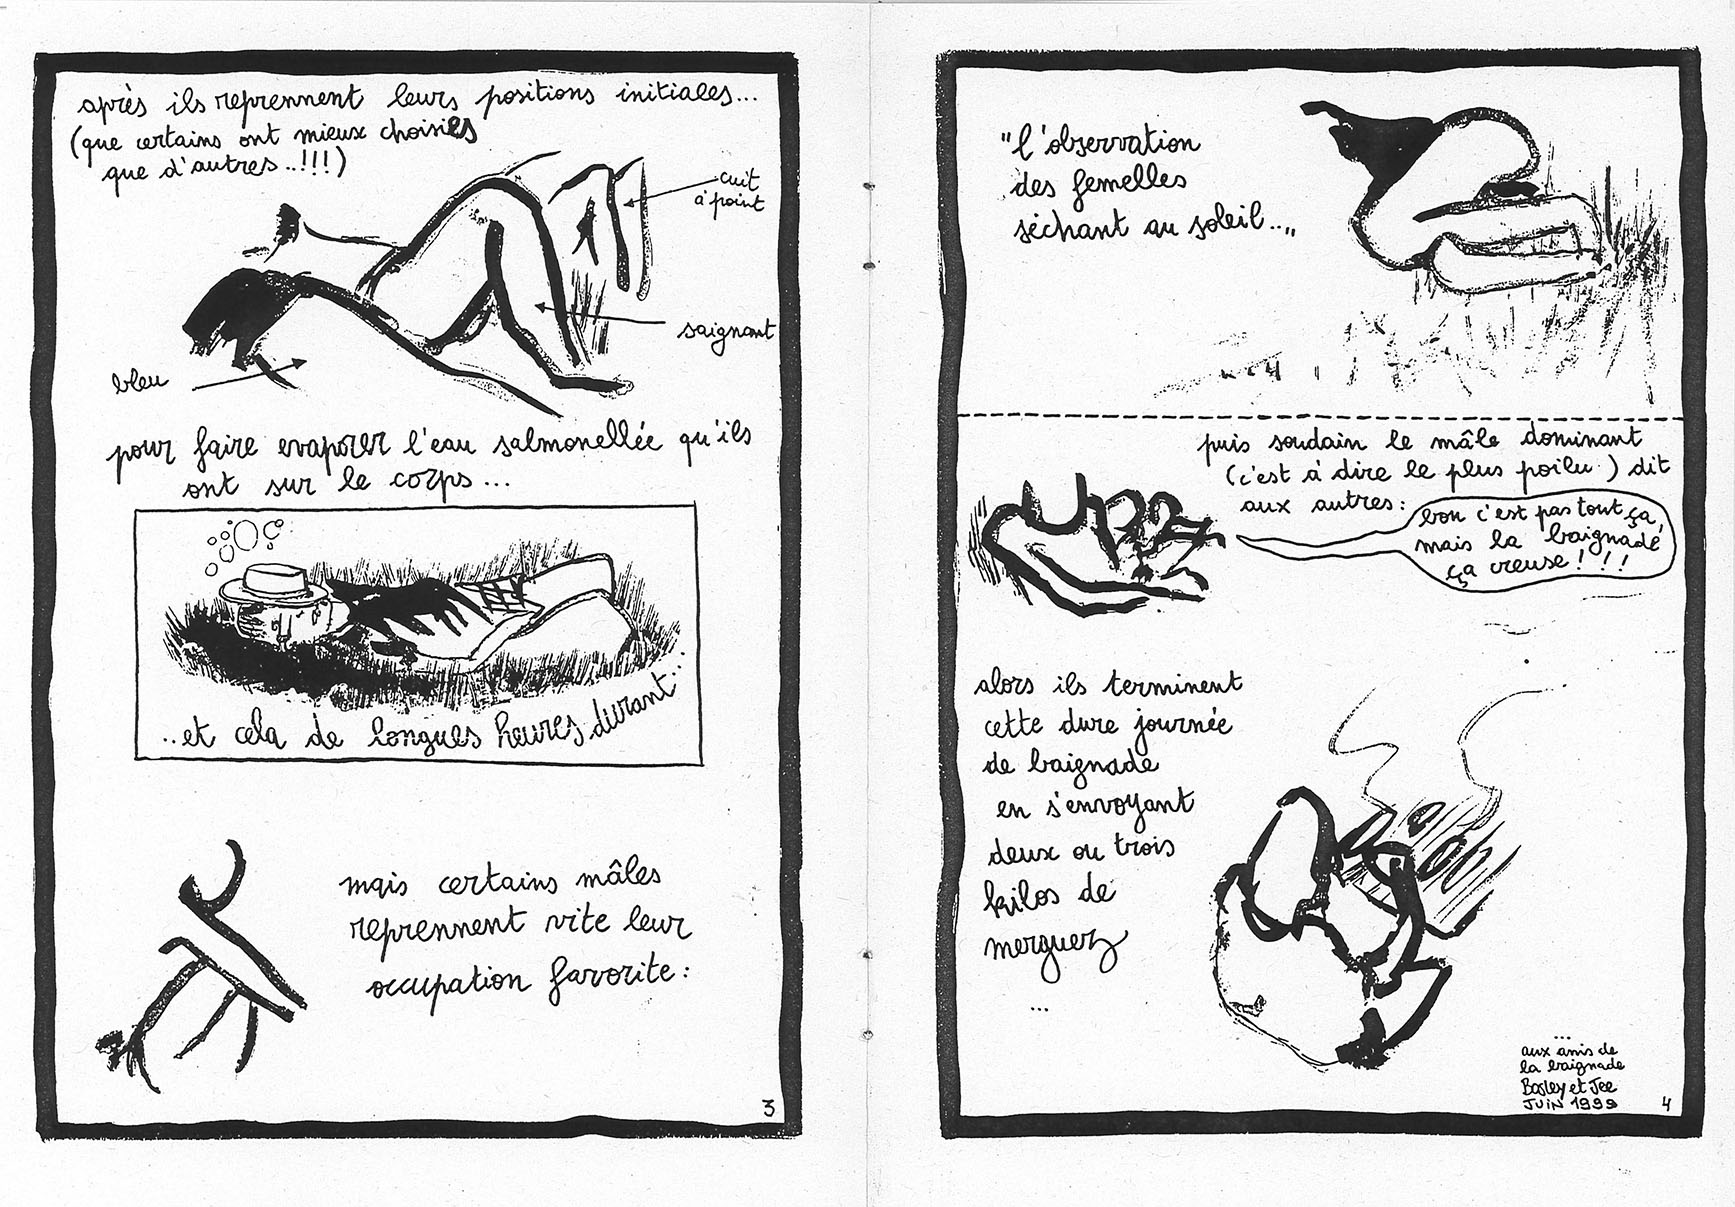 après ils reprennent leurs positions initiales...
(que certains ont mieux choisies
que d'autres..!!!)
cuit
à point
saignant
bleu
pour faire evaporer l'eau salmonellée qu'ils
ont sur le corps...
..et cela de longues heures durant...
mais certains mâles
reprennent vite leur
occupation favorite:
3
"l'observation
des femelles
séchant au soleil..."
puis soudain le mâle dominant
(c'est à dire le plus poilu) dit
aux autres:
bon c'est pas tout ça,
mais la baignade
ça creuse!!!
alors ils terminent
cette dure journée
de baignade
en s'envoyant
deux ou trois
kilos de
merguez
...
...
aux amis de
la baignade
Bosley et Jee
JUIN 1999
4